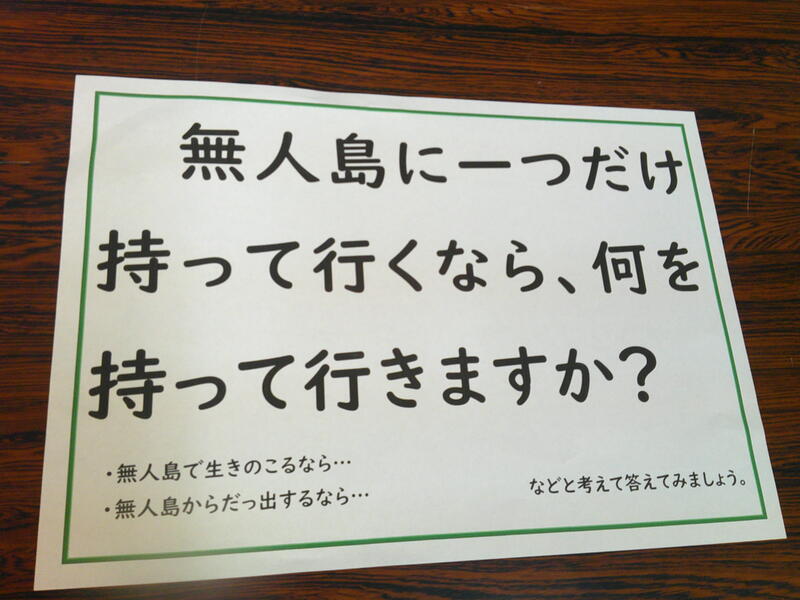 無人島に一つだけ
持って行くなら、何を
持って行きますか?
・無人島で生きのこるなら…
・無人島からだっ出するなら…
などと考えて答えてみましょう。